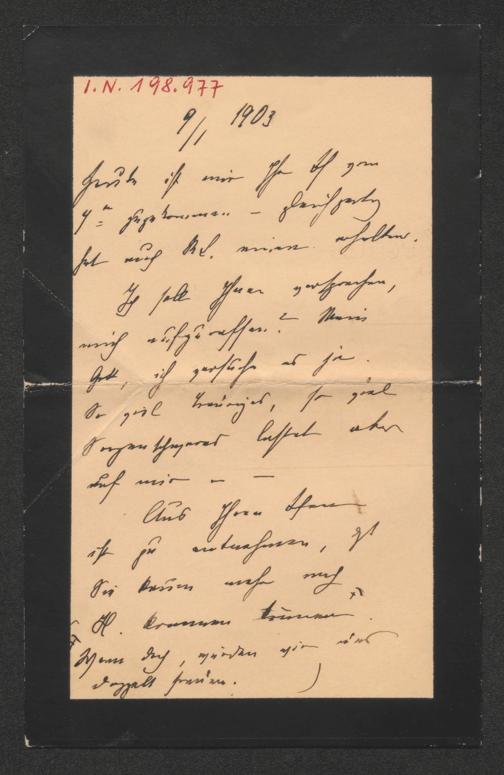 I.N. 198.977
9/1 1903
Heute ist mir Ihr Schr vom
zugekommen – gleichzeitig
hat auch Kl. einen erhalten.
Ich soll Ihnen versprechen,
mich aufzuraffen? Mein
Gott, ich versuche es ja.
So viel Trauriges, so viel
Sorgenschweres lastet aber
auf mir – –
Aus Ihrem
ist zu entnehmen, daß
Sie kaum mehr nach
H. kommen können.
Wenn doch, würden wir uns
doppelt freuen. )